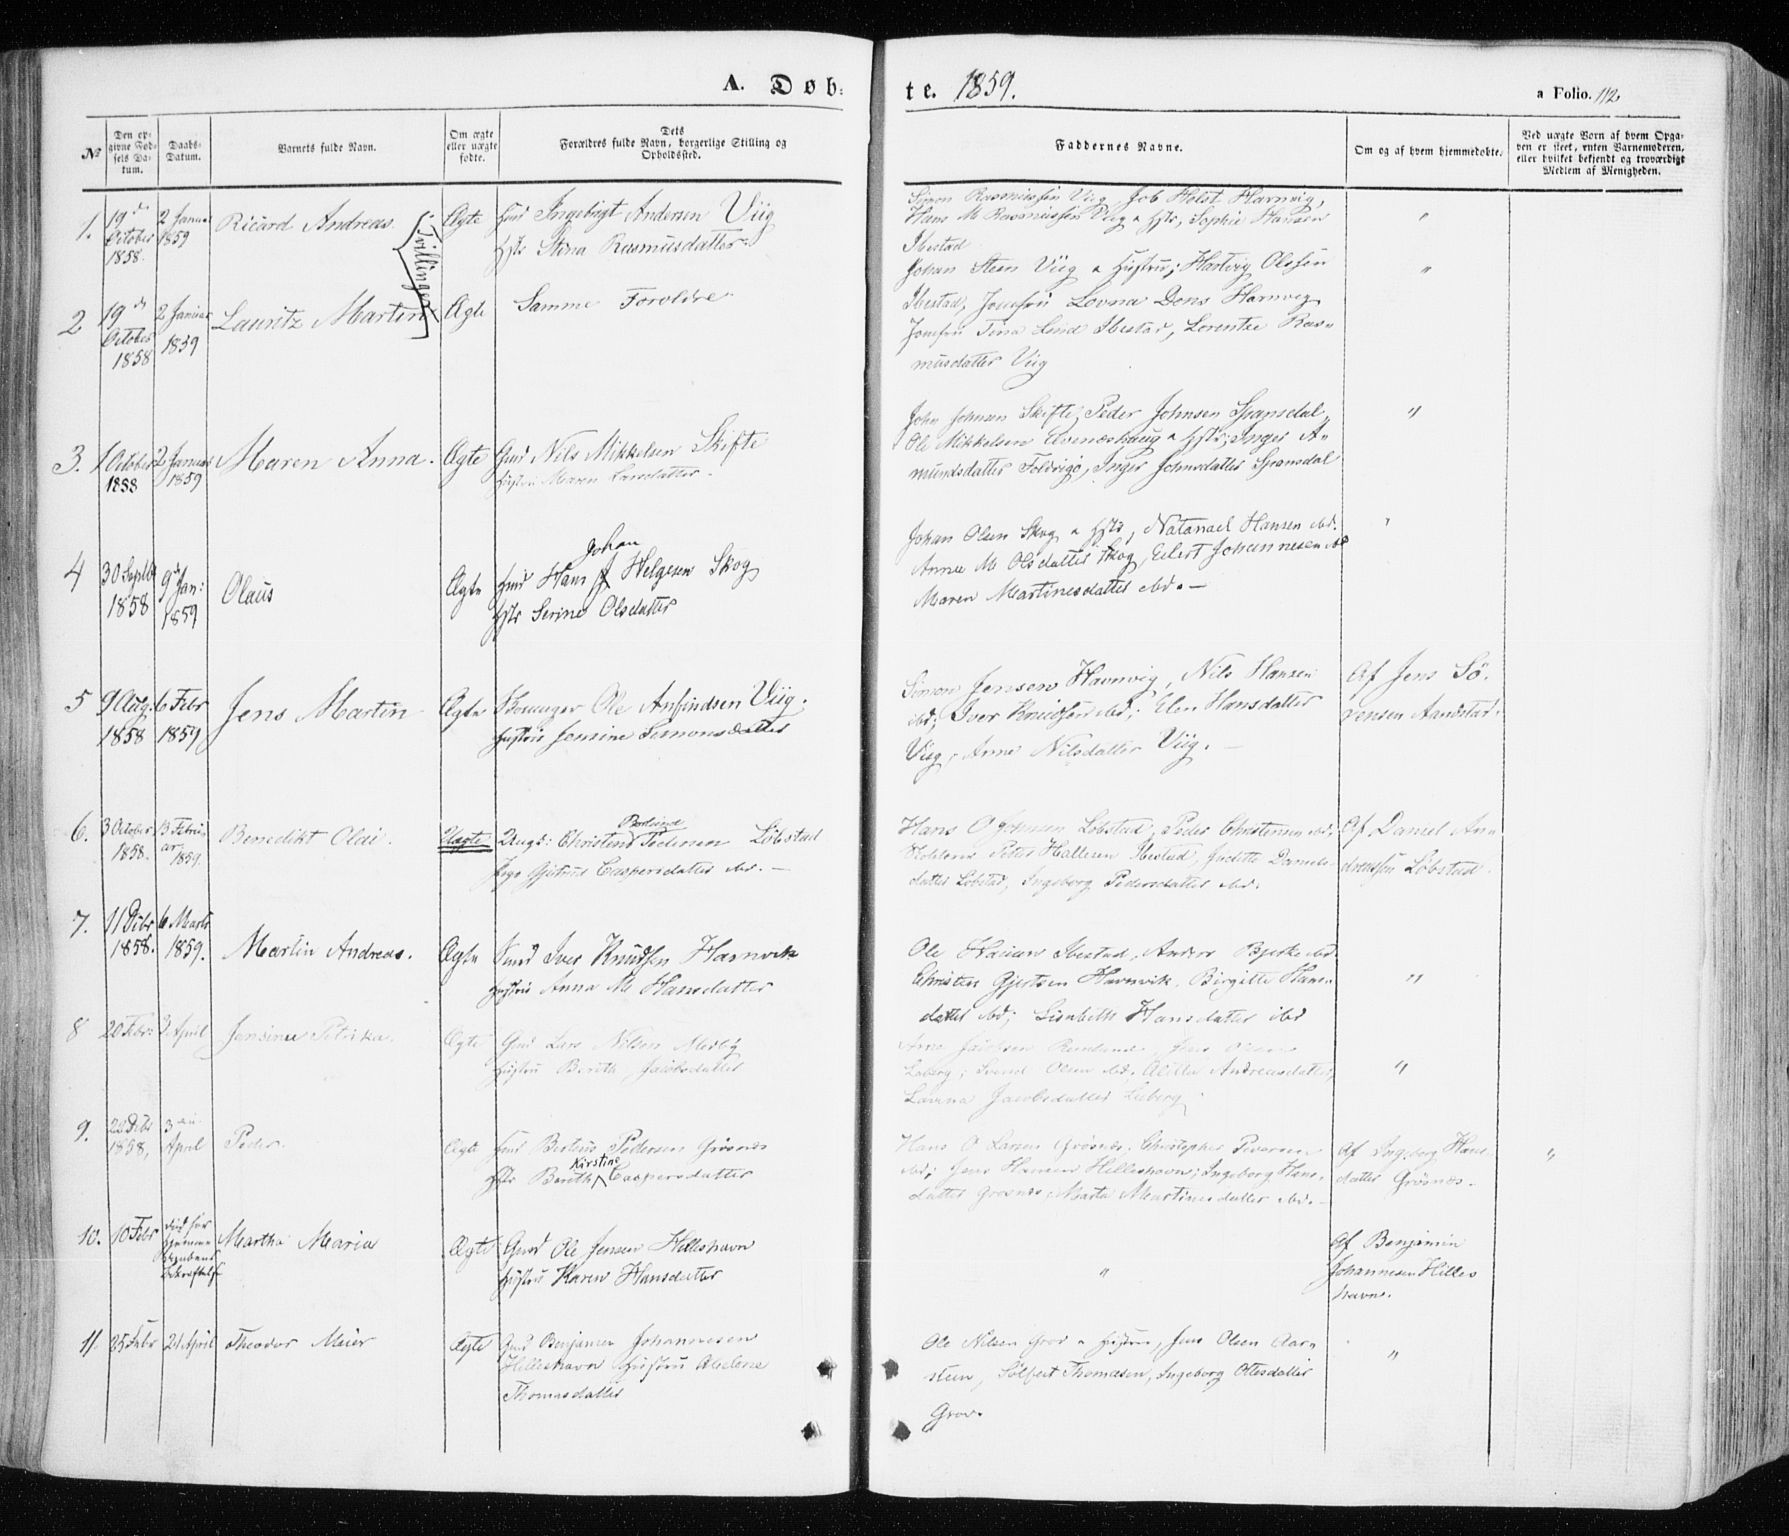 A. Døb: te. 1859.
a Folio. 112
№
Den op-
givne Fød-
sels Da-
tum.
Daabs-
Datum.
Barnets fulde Navn.
Om ægte
eller uægte
fødte.
Dets
Forældres fulde Navn, borgerlige Stilling og
Opholdssted.
Faddernes Navne.
Om og af hvem hjemmedøbte.
Ved uægte Børn af hvem Opga-
ven er skeet, enten Barnemoderen,
eller hvilket bekjendt og troværdigt
Medlem af Menigheden.
1.
19de
October
1858.
2 Januar
1859
Ricard Andreas
Tvillinger
Ægte
Gmd Ingebrigt Andersen Viig
Hstr Stina Rasmusdatter
Simon Rasmussen Viig, Job Holst Havnvig,
Hans M Rasmussen Viig & Hstr, Sophie Hansen
Ibestad
"
2
19de
October
1858
2 Januar
1859
Lauritz Martin
Ægte
Samme Forældre
Johan Steen Viig & Hustru; Hartvig Olsen
Ibestad, Jomfru Lovna Dons Havnvig
Jomfru Tina Lind Ibestad, Lorentze Ras-
musdatter Viig
"
3.
1 October
1858
2 Januar
1859
Maren Anna.
Ægte
Gmd Nils Mikkelsen Skifte
Hustru Maren Larsdatter.
John Johnsen Skifte; Peder Johnsen Spansdal,
Ole Mikkelsen & Hstr; Inger A-
mundsdatter Foldvig, Inger Johnsdatter Spansdal
"
4
30 Septbr
1858
9de Jan:
1859
Olaus
Ægte
Johan
Gmd Hans Helgesen Skog
Hstr Serine Olsdatter
Johan Olsen Skog & Hstr, Natanael Hansen ibd.
Anne M Olsdatter Skog, Eilert Johannesen ibd
Maren Martinesdatter ibd. —
"
5
9 Aug:
1858
6 Febr
1859
Jens Martin
Ægte
Ole Anfindsen Viig.
Hustru Jensine Simonsdatter
Simon Jensen Havnvig, Nils Hansen
ibd; Iver Knudsen ibd; Elen Hansdatter
Viig, Anne Nilsdatter Viig. —
Af Jens Sø-
rensen Aandstad.
6.
3 October
1858.
13 Febru-
ar
1859.
Benedikt Olai.
Uægte
Ungk: Christen Pedersen Løbstad
Pige Gjetrud Caspersdatter ibd. —
Hans O Johnsen Løbstad, Peder Christensen ibd,
Peter Hallesen Ibestad, Judithe Daniels-
datter Løbstad, Ingeborg Pedersdatter ibd.
Af Daniel An-
dreassen Løbstad.
7.
11 Decbr
1858.
6 Marts
1859.
Martin Andreas.
Ægte
Gmd Iver Knudsen Havnvik
Hustru Anna M Hansdatter
Ole Ibestad, Andor Bjerke ibd.
Christen Gjertsen Havnvik, Birgitte Hans-
datter ibd; Lisabeth Hansdatter ibd
"
8
20 Febr:
3 April
Jensine Petrika.
Ægte
Gmd Lars Nilsen Medby
Hustru Berith Jacobsdatter
Arne Jacobsen Jens Olsen
Løberg; Svend Olsen ibd, Andreasdatter,
Lavina Jacobsdatter Løberg
"
9.
22 Decbr
1858,
3die
April
Peder.
Ægte
Gmd Pedersen Grøsnæs
Kirstine
Hstr Berith Caspersdatter
Hans O Larsen Grøsnæs, Christopher Iversen
ibd; Jens Hansen Helleshavn; Ingeborg Hans-
datter Grøsnæs, Marta Martinesdatter ibd. —
Af Ingeborg Hans-
datter Grøsnæs.
"
10.
10 Febr
død før
hjemme-
daabens
Bekræftelse
Martha Maria
Ægte
Gmd Ole Jensen Helleshavn
Hustru Karen Hansdatter
"
Af Benjamin
Johannesen Helles
havn.
11.
25 Febr
21 April
Theodor Meier
Ægte
Gmd Benjamin Johannesen
Helleshavn Hustru Abelene
Thomasdatter
Ole Nilsen Grov & Hustru, Jens Olsen Aar-
steen, Sølfest Thomasen, Ingeborg Ottesdatter
Grov.
"